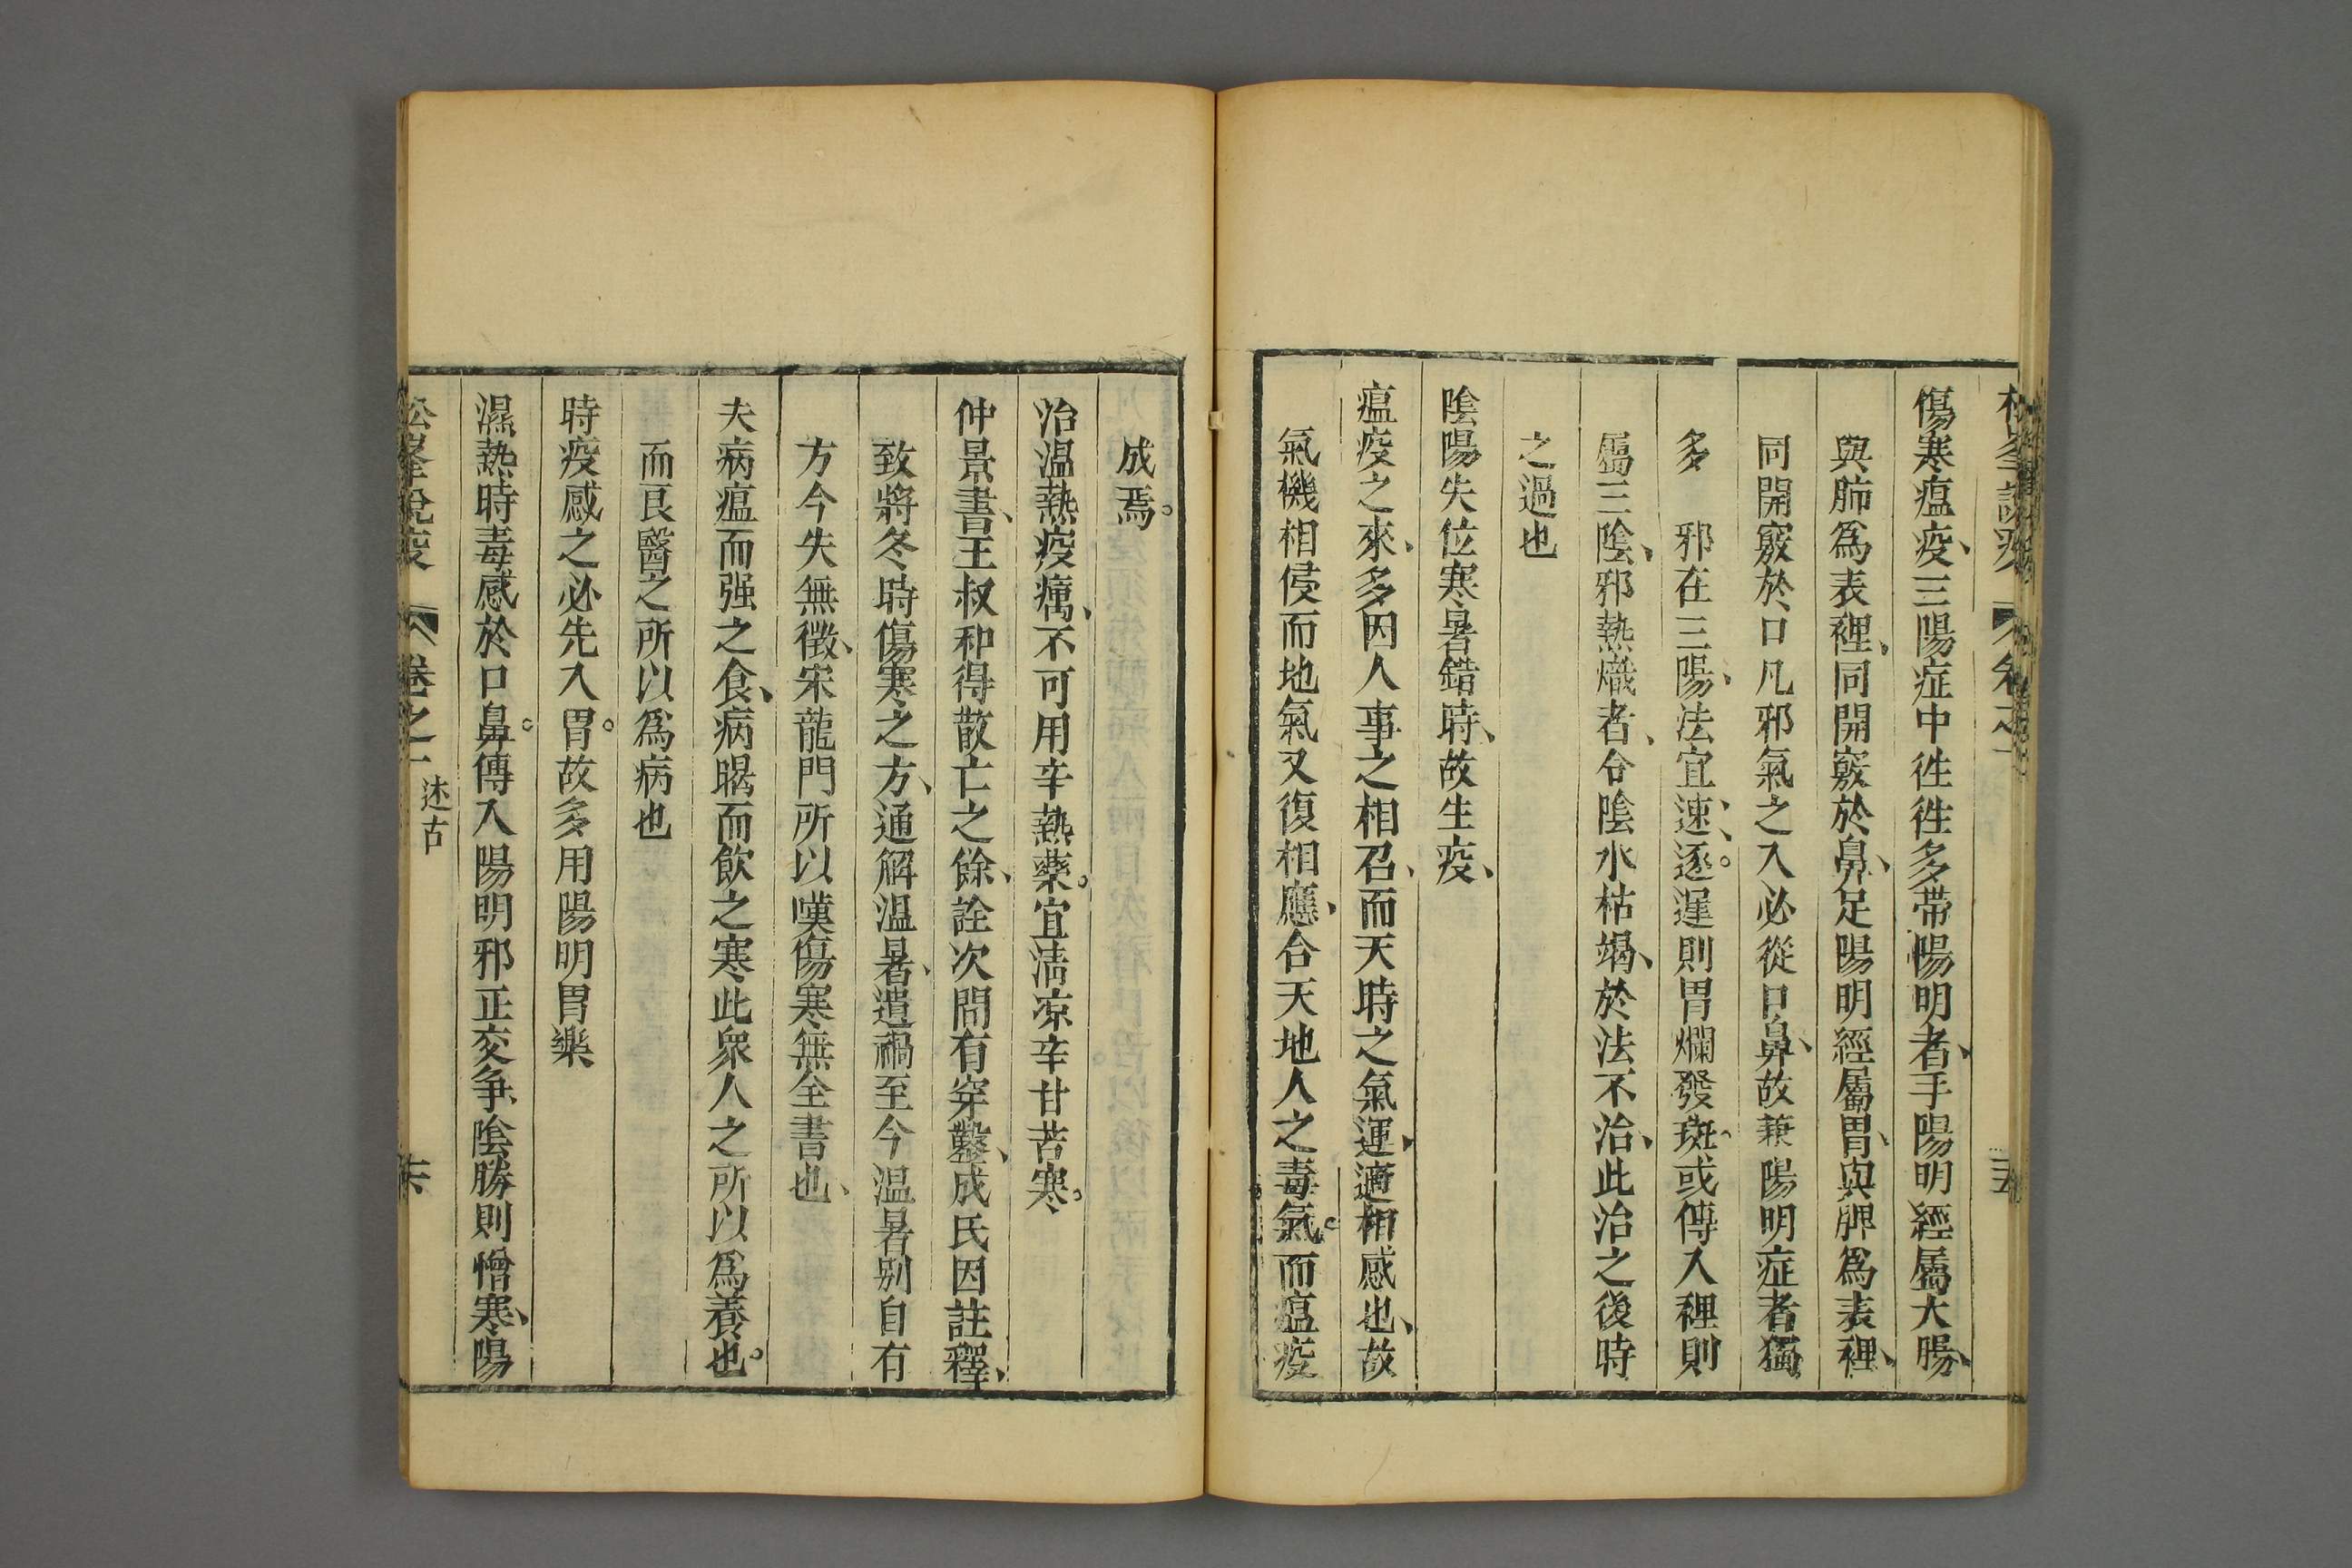 傷寒瘟疫、三陽症中徃徃多带陽明者、手陽明經屬大腸、
與肺爲表裡、同開竅於鼻、足陽明經屬胃、與脾爲表裡、
同開竅於口凡邪氣之入必從口鼻、故兼陽明症者獨
多　邪在三陽、法宜速、逐。遲則胃爛發斑。或傳入裡則
屬三陰、邪熱熾者、合陰水枯竭、於法不治、此治之後時
之過也
陰陽失位寒暑錯時、故生疫、
瘟疫之來、多因人事之相召、而天時之氣運、適相感也、故
氣機相侵而地氣又復相應、合天地人之毒氣。而瘟疫
成焉。
治温熱疫癘、不可用辛熱藥。宜清凉辛甘苦寒。
仲景書、王叔和得散亡之餘、詮次間有穿鑿、成氏因註釋、
致將冬時傷寒之方、通解温暑、遺禍至今温暑別自有
方今失無徵、宋龍門所以嘆傷寒無全書也、
夫病瘟而强之食、病暍而飲之寒此衆人之所以爲養也。
而良醫之所以爲病也
時疫感之必先入胃。故多用陽明胃藥
濕熱時毒感於口鼻。傳入陽明邪正交争、陰勝則憎寒、陽
松峯說疫　卷之一　述古